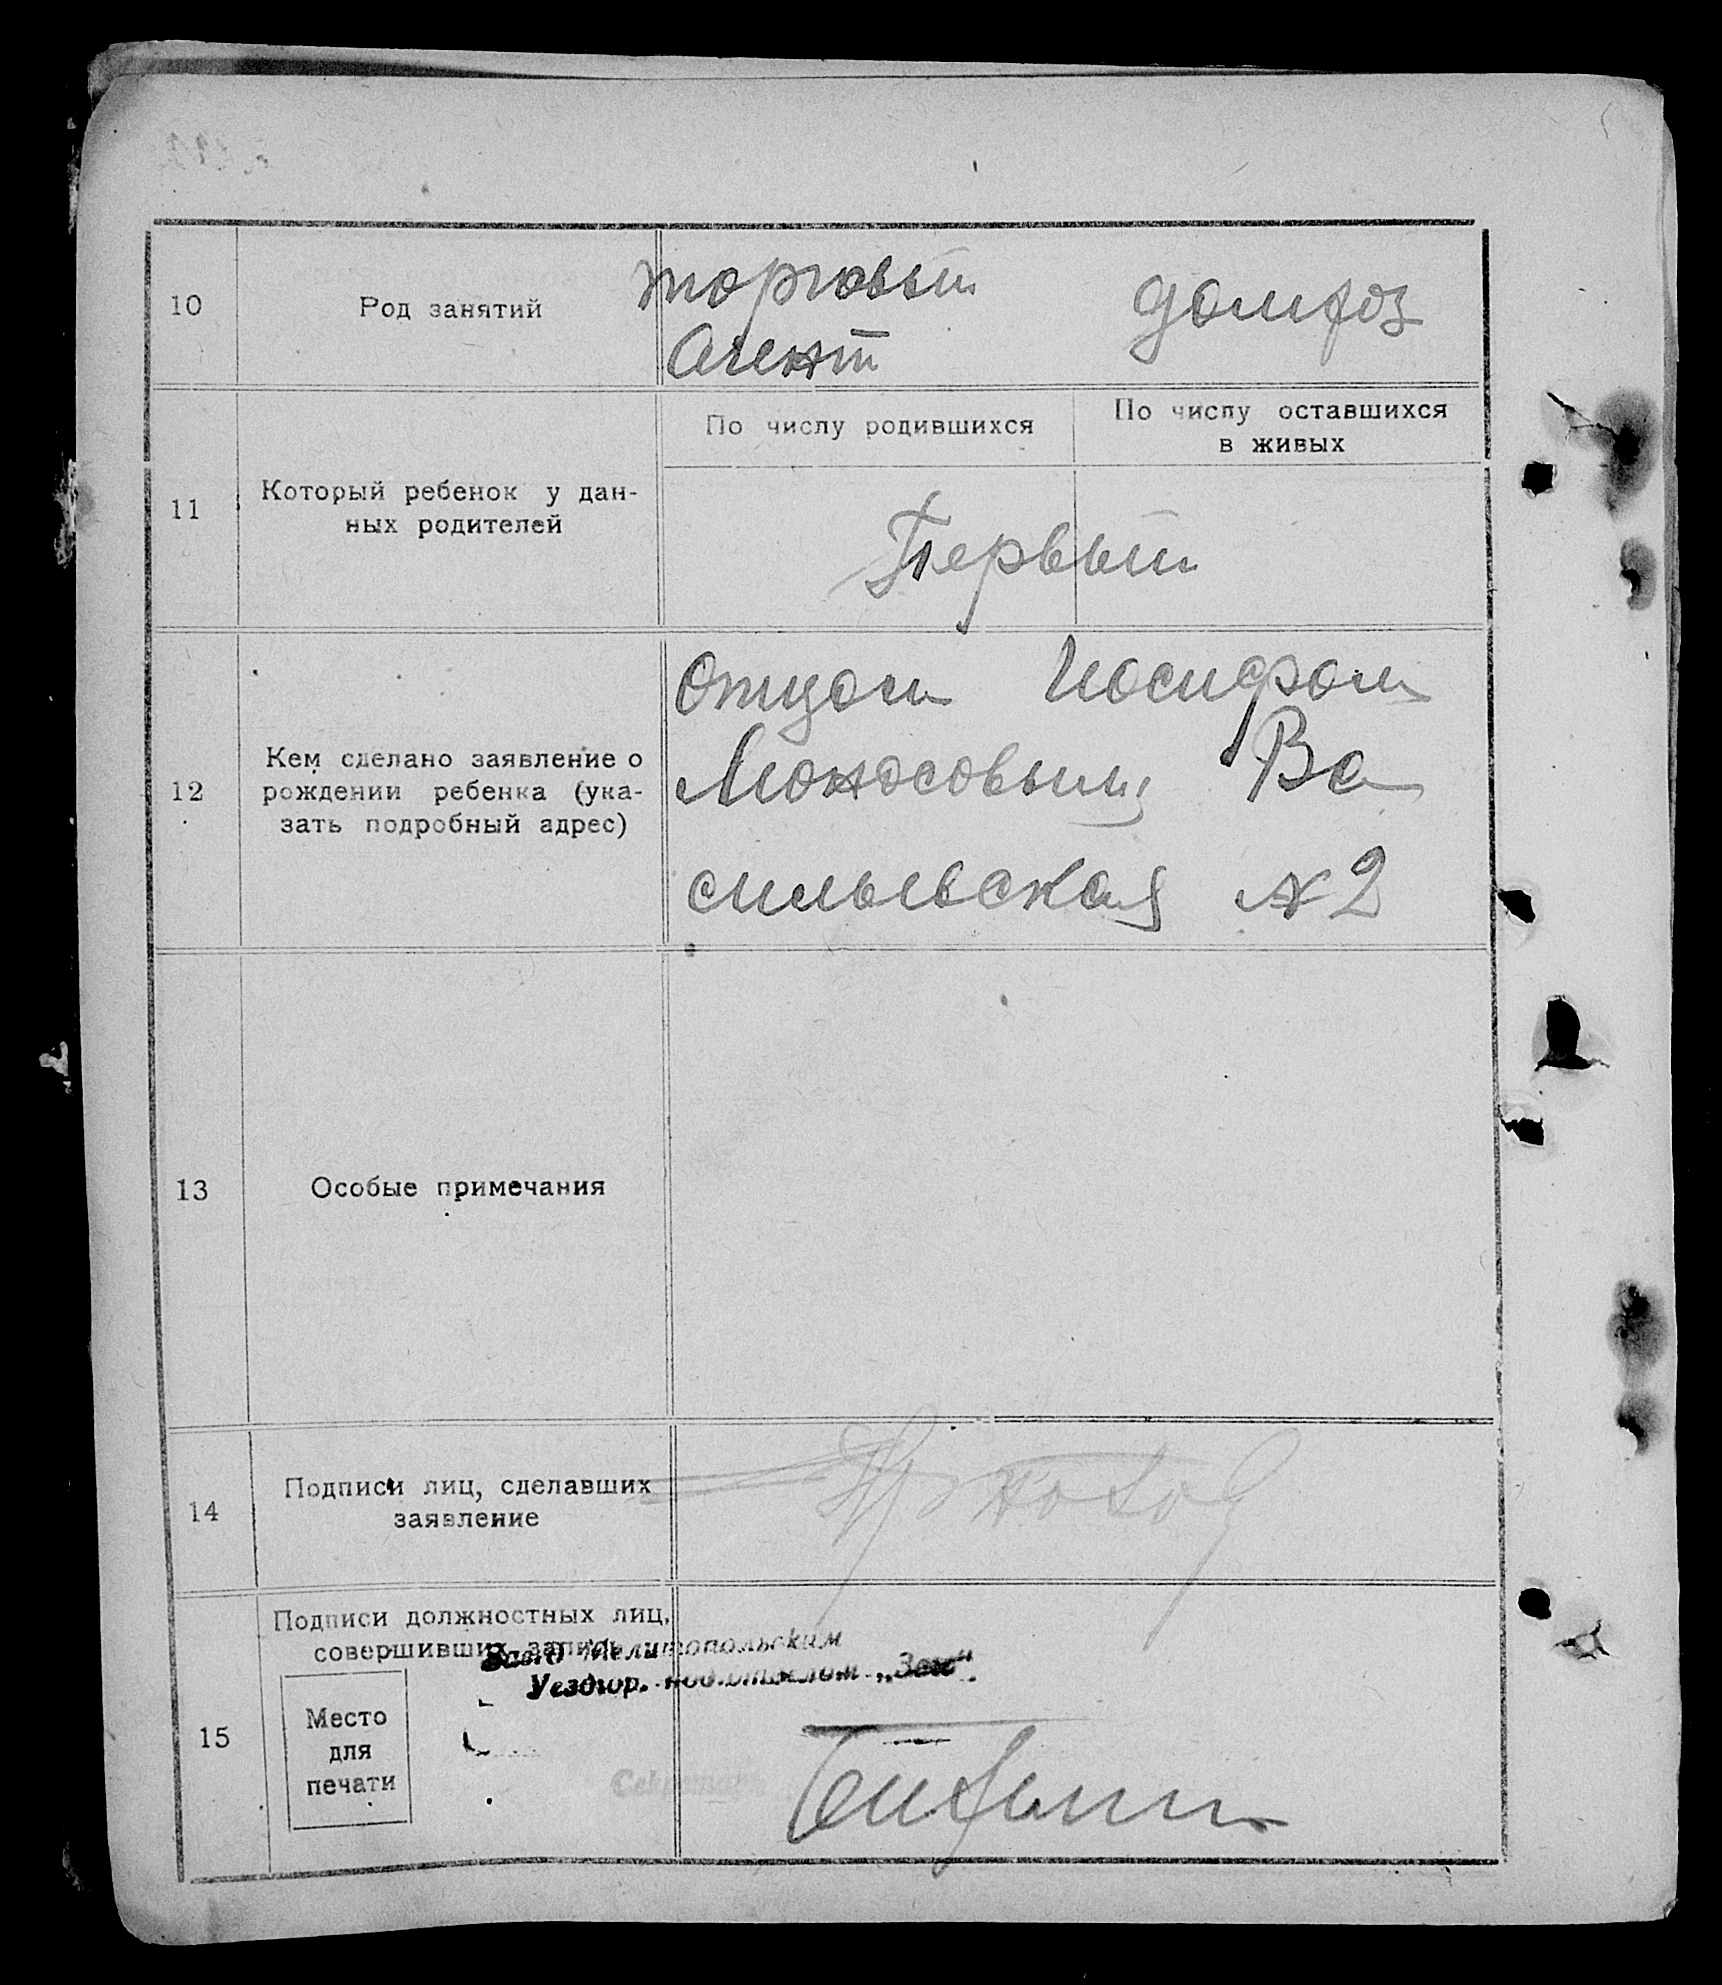 10 Род занятий торговый домхоз
агент
По числу родившихся По числу оставшихся
в живых
11 Который ребенок у дан-
ных родителей
Первый
12 Кем сделано заявление о
рождении ребенка (ука-
зать подробный адрес)
Отцом Иосифом
Моносовым, Ва
сильевская № 2
13 Особые примечания
14 Подписи лиц, сделавших
заявление
15 Подписи должностных лиц,
совершивших запись
Мелитопольским
Уездгор. под.отделом „Загс“.
Место
для
печати
Секретарь